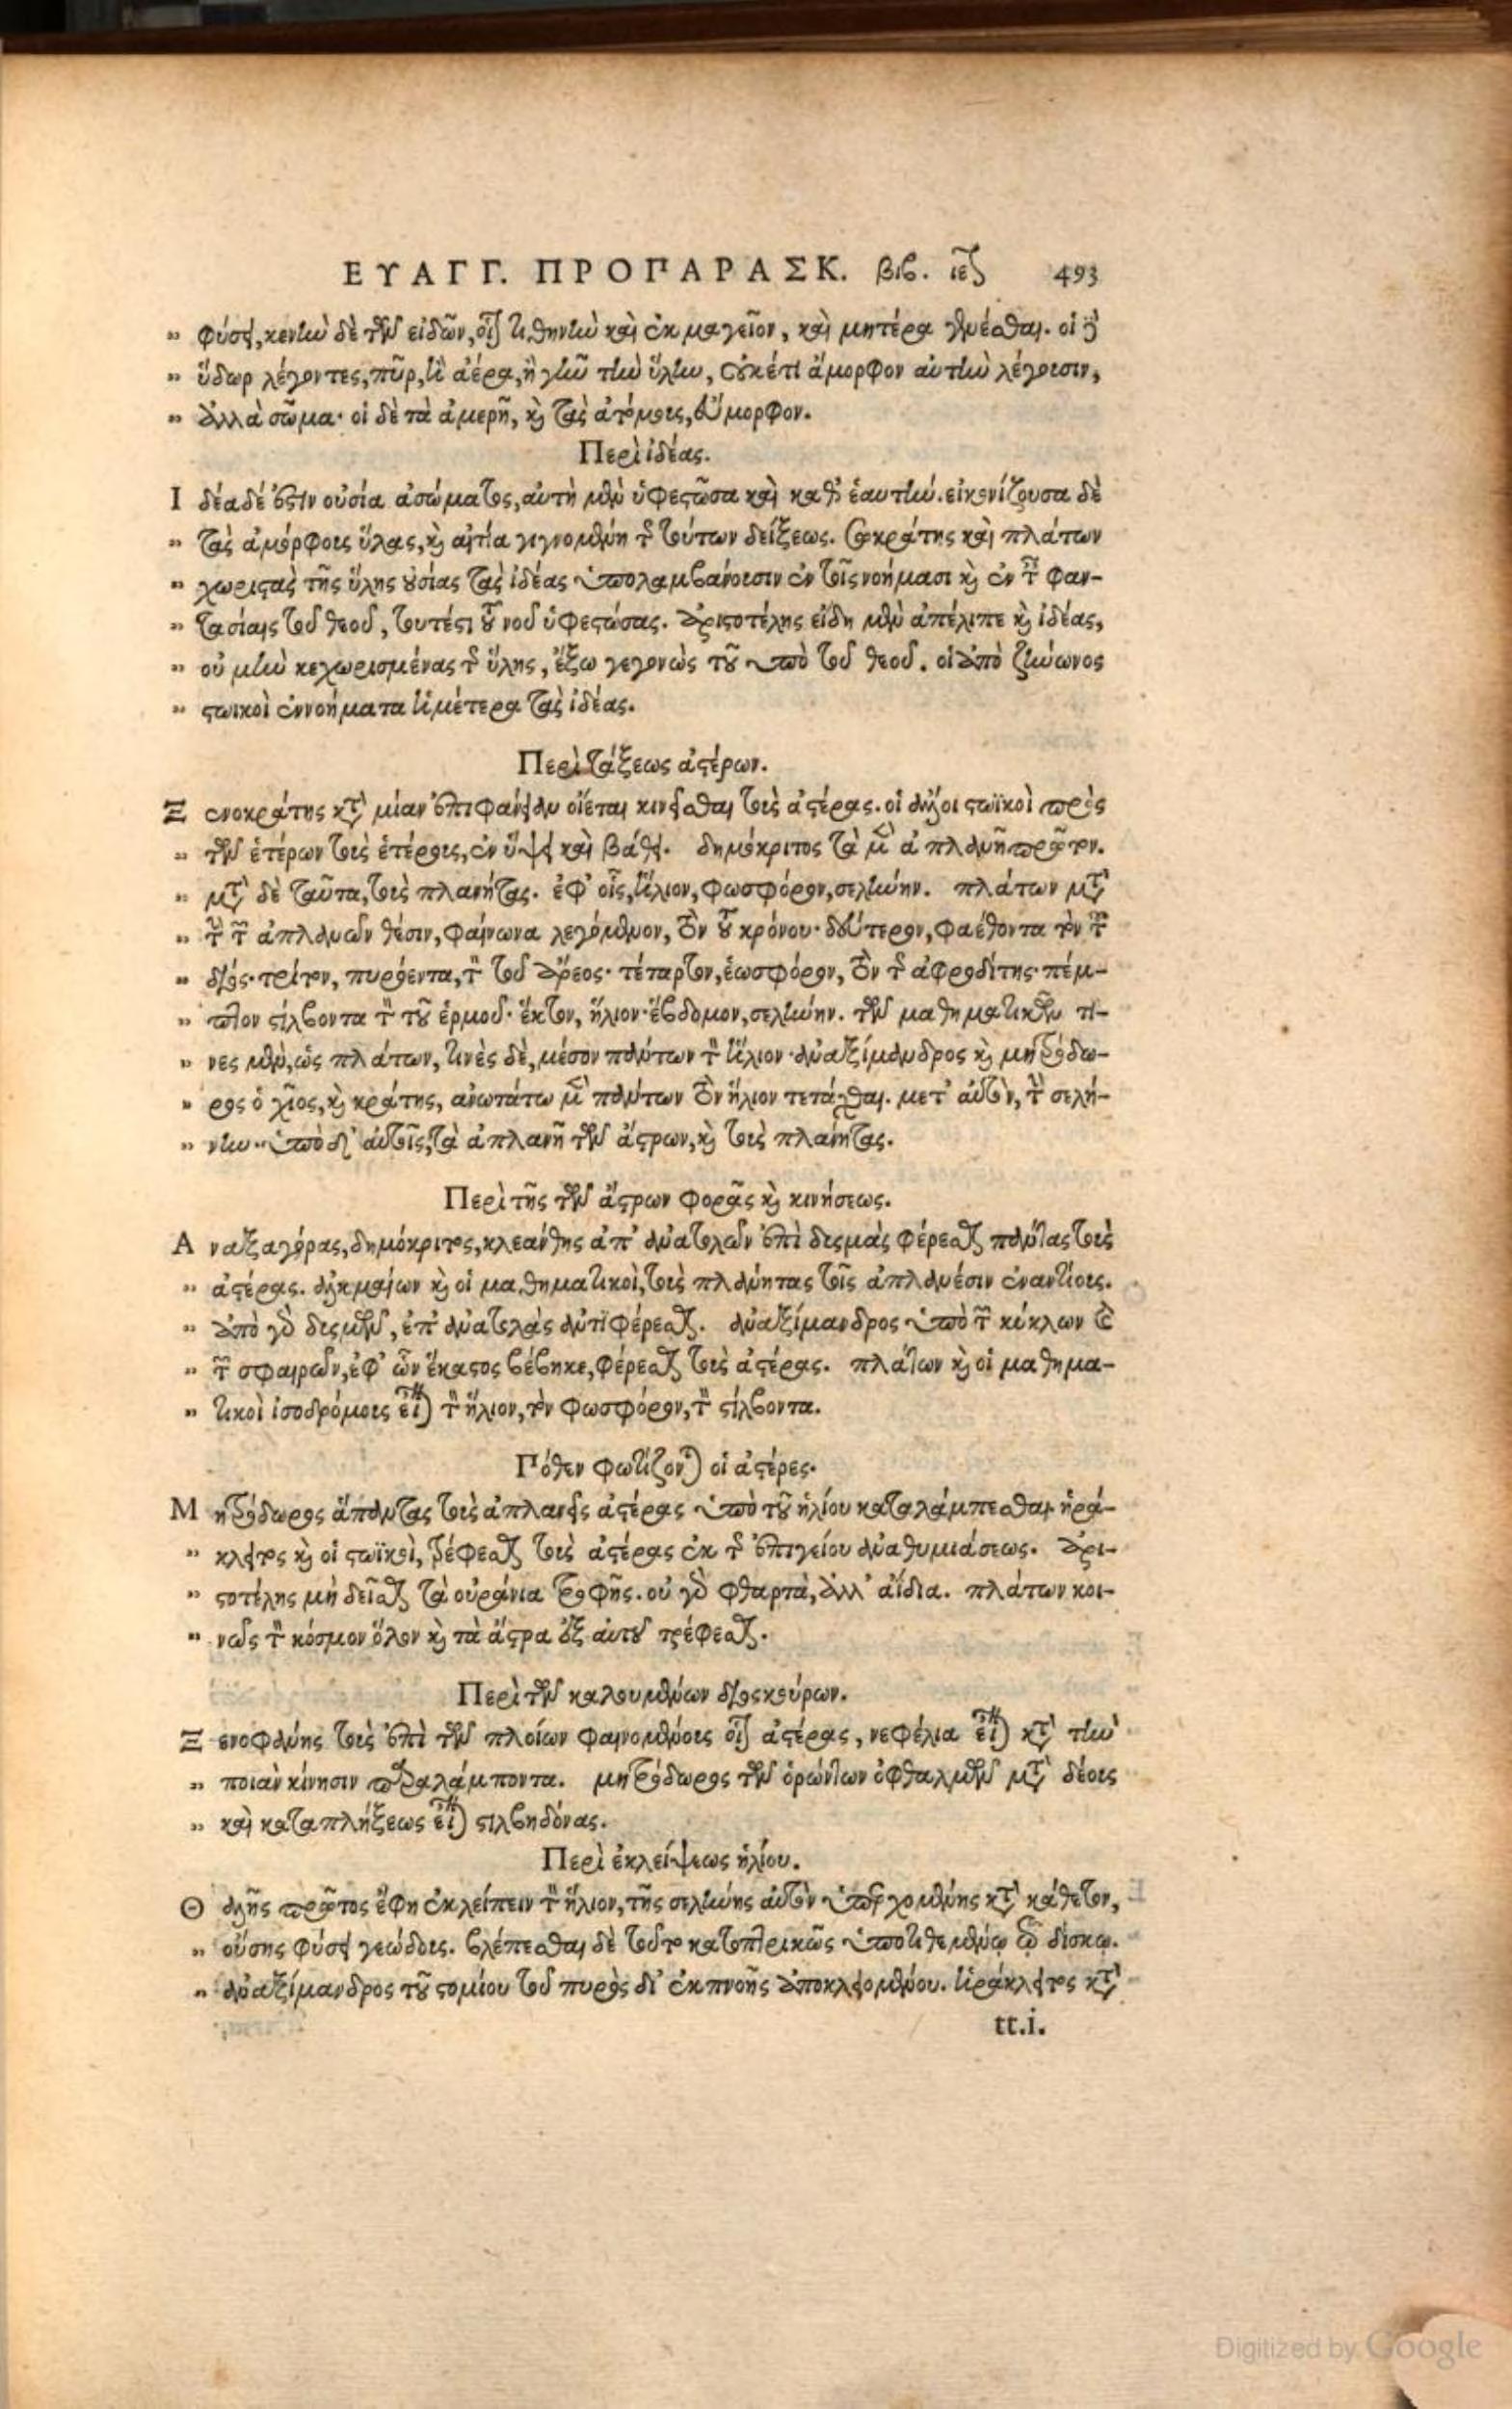 ΕΥΑΓΓ. ΠΡΟΠΑΡΑΣΚ. βιβ. ιε 493
" φύσει, κενὴν δὲ τῶν εἰδῶν, οἷον τιθηνὴν καὶ ἐκμαγεῖον, καὶ μητέρα γενέσθαι. οἱ δὲ
" ὕδωρ λέγοντες, πῦρ, ἢ ἀέρα, ἢ γῆν τὴν ὕλην, οὐκέτι ἄμορφον αὐτὴν λέγουσιν,
" ἀλλὰ σῶμα· οἱ δὲ τὰ ἀμερῆ, καὶ τὰς ἀτόμους, ἄμορφον.
Περὶ ἰδέας.
Ἰδέα δέ ἐστιν οὐσία ἀσώματος, αὐτὴ μὲν ὑφεστῶσα καὶ καθ' ἑαυτήν. εἰκονίζουσα δὲ
" τὰς ἀμόρφους ὕλας, καὶ αἰτία γιγνομένη τῆς τούτων δείξεως. Σωκράτης καὶ πλάτων
" χωριστὰς τῆς ὕλης οὐσίας τὰς ἰδέας ὑπολαμβάνουσιν ἐν τοῖς νοήμασι καὶ ἐν ταῖς φαν-
" τασίαις τοῦ θεοῦ, τουτέστι τοῦ νοῦ ὑφεστώσας. ἀριστοτέλης εἴδη μὲν ἀπέλιπε καὶ ἰδέας,
" οὐ μὴν κεχωρισμένας τῆς ὕλης, ἔξω γεγονὼς τοῦ ὑπὸ τοῦ θεοῦ. οἱ ἀπὸ ζήνωνος
" στωικοὶ ἐννοήματα ἡμέτερα τὰς ἰδέας.
Περὶ τάξεως ἀστέρων.
Ξενοκράτης κατὰ μίαν ἐπιφάνειαν οἴεται κινεῖσθαι τοὺς ἀστέρας. οἱ ἄλλοι στωϊκοὶ πρὸς
" τῶν ἑτέρων τοὺς ἑτέρους, ἐν ὕψει καὶ βάθει. δημόκριτος τὰ μὲν ἀπλανῆ πρῶτον.
" μετὰ δὲ ταῦτα, τοὺς πλανήτας. ἐφ' οἷς, ἥλιον, φωσφόρον, σελήνην. πλάτων μετὰ
" τὴν τῶν ἀπλανῶν θέσιν, φαίνωνα λεγόμενον, τὸν τοῦ κρόνου· δεύτερον, φαέθοντα τὸν τοῦ
" διός· τρίτον, πυρόεντα, τὸν τοῦ ἄρεος· τέταρτον, ἑωσφόρον, τὸν τῆς ἀφροδίτης· πέμ-
" πτον στίλβοντα τὸν τοῦ ἑρμοῦ· ἕκτον, ἥλιον· ἕβδομον, σελήνην. τῶν μαθηματικῶν τι-
" νες μὲν, ὡς πλάτων, τινὲς δὲ, μέσον πάντων τὸν ἥλιον· ἀναξίμανδρος καὶ μητρόδω-
" ρος ὁ χῖος, καὶ κράτης, ἀνωτάτω μὲν πάντων τὸν ἥλιον τετάχθαι. μετ' αὐτὸν, τὴν σελή-
" νην· ὑπὸ δὲ αὐτοῖς, τὰ ἀπλανῆ τῶν ἄστρων, καὶ τοὺς πλανήτας.
Περὶ τῆς τῶν ἄστρων φορᾶς καὶ κινήσεως.
Ἀναξαγόρας, δημόκριτος, κλεάνθης ἀπ' ἀνατολῶν ἐπὶ δυσμὰς φέρεσθαι πάντας τοὺς
" ἀστέρας. ἀλκμαίων καὶ οἱ μαθηματικοὶ, τοὺς πλάνητας τοῖς ἀπλανέσιν ἐναντίους.
" ἀπὸ γὰρ δυσμῶν, ἐπ' ἀνατολὰς ἀντιφέρεσθαι. ἀναξίμανδρος ὑπὸ τῶν κύκλων καὶ
" τῶν σφαιρῶν, ἐφ' ὧν ἕκαστος βέβηκε, φέρεσθαι τοὺς ἀστέρας. πλάτων καὶ οἱ μαθημα-
" τικοὶ ἰσοδρόμους εἶναι τὸν ἥλιον, τὸν φωσφόρον, τὸν στίλβοντα.
Πόθεν φωτίζονται οἱ ἀστέρες.
Μητρόδωρος ἅπαντας τοὺς ἀπλανεῖς ἀστέρας ὑπὸ τοῦ ἡλίου καταλάμπεσθαι· ἡρά-
" κλειτος καὶ οἱ στωϊκοὶ, τρέφεσθαι τοὺς ἀστέρας ἐκ τῆς ἐπιγείου ἀναθυμιάσεως. ἀρι-
" στοτέλης μὴ δεῖσθαι τὰ οὐράνια τροφῆς. οὐ γὰρ φθαρτὰ, ἀλλ' ἀΐδια. πλάτων κοι-
" νῶς τὸν κόσμον ὅλον καὶ τὰ ἄστρα ἐξ αὐτοῦ τρέφεσθαι.
Περὶ τῶν καλουμένων διοσκούρων.
Ξενοφάνης τοὺς ἐπὶ τῶν πλοίων φαινομένους οἷον ἀστέρας, νεφέλια εἶναι κατὰ τὴν
" ποιὰν κίνησιν παραλάμποντα. μητρόδωρος τῶν ὁρώντων ὀφθαλμῶν μετὰ δέους
" καὶ καταπλήξεως εἶναι στιλβηδόνας.
Περὶ ἐκλείψεως ἡλίου.
Θαλῆς πρῶτος ἔφη ἐκλείπειν τὸν ἥλιον, τῆς σελήνης αὐτὸν ὑπερχομένης κατὰ κάθετον,
" οὔσης φύσει γεώδους. βλέπεσθαι δὲ τοῦτο κατοπτρικῶς ὑποτιθεμένῳ τῷ δίσκῳ.
" ἀναξίμανδρος τοῦ στομίου τοῦ πυρὸς δι' ἐκπνοῆς ἀποκλειομένου. ἡράκλειτος κατὰ
tt.i.
Digitized by Google